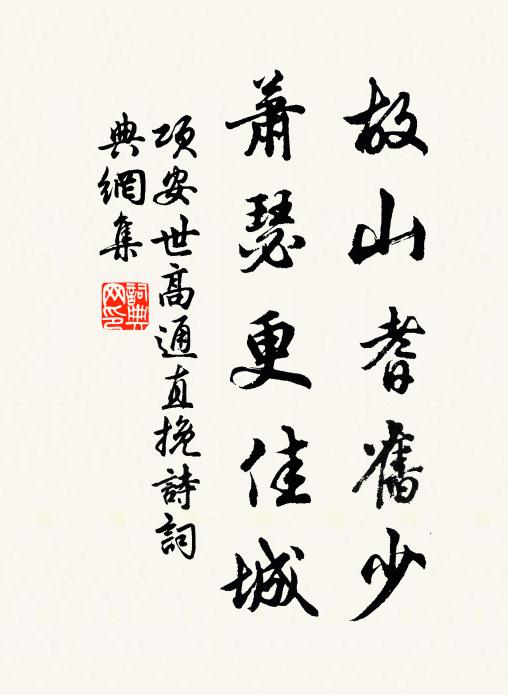 故山耆舊少
蕭瑟更佳城
項安世高通直挽詩詞
典網集
詞典
网印